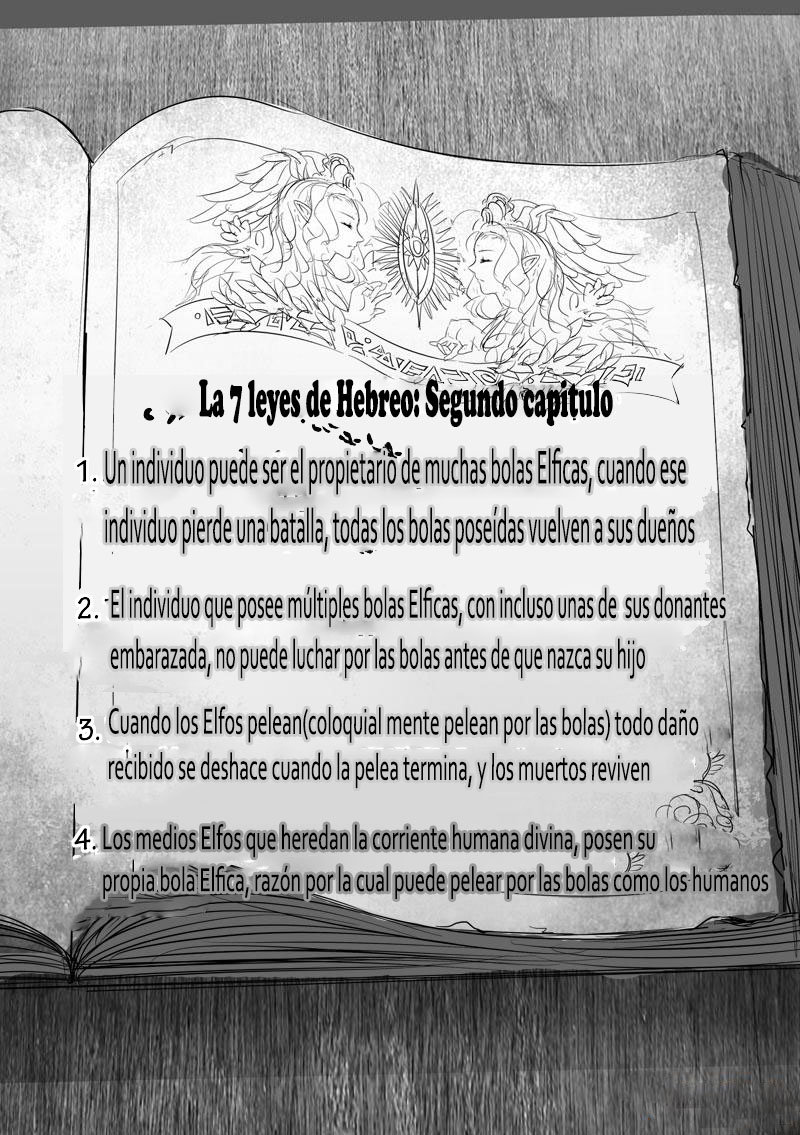 La 7 leyes de Hebreo: Segundo capitulo
1. Un individuo puede ser el propietario de muchas bolas Elficas, cuando ese
individuo pierde una batalla, todas los bolas poseídas vuelven a sus dueños
2. El individuo que posee múltiples bolas Elficas, con incluso unas de sus donantes
embarazada, no puede luchar por las bolas antes de que nazca su hijo
3. Cuando los Elfos pelean(coloquial mente pelean por las bolas) todo daño
recibido se deshace cuando la pelea termina, y los muertos reviven
4. Los medios Elfos que heredan la corriente humana divina, posen su
propia bola Elfica, razón por la cual puede pelear por las bolas como los humanos